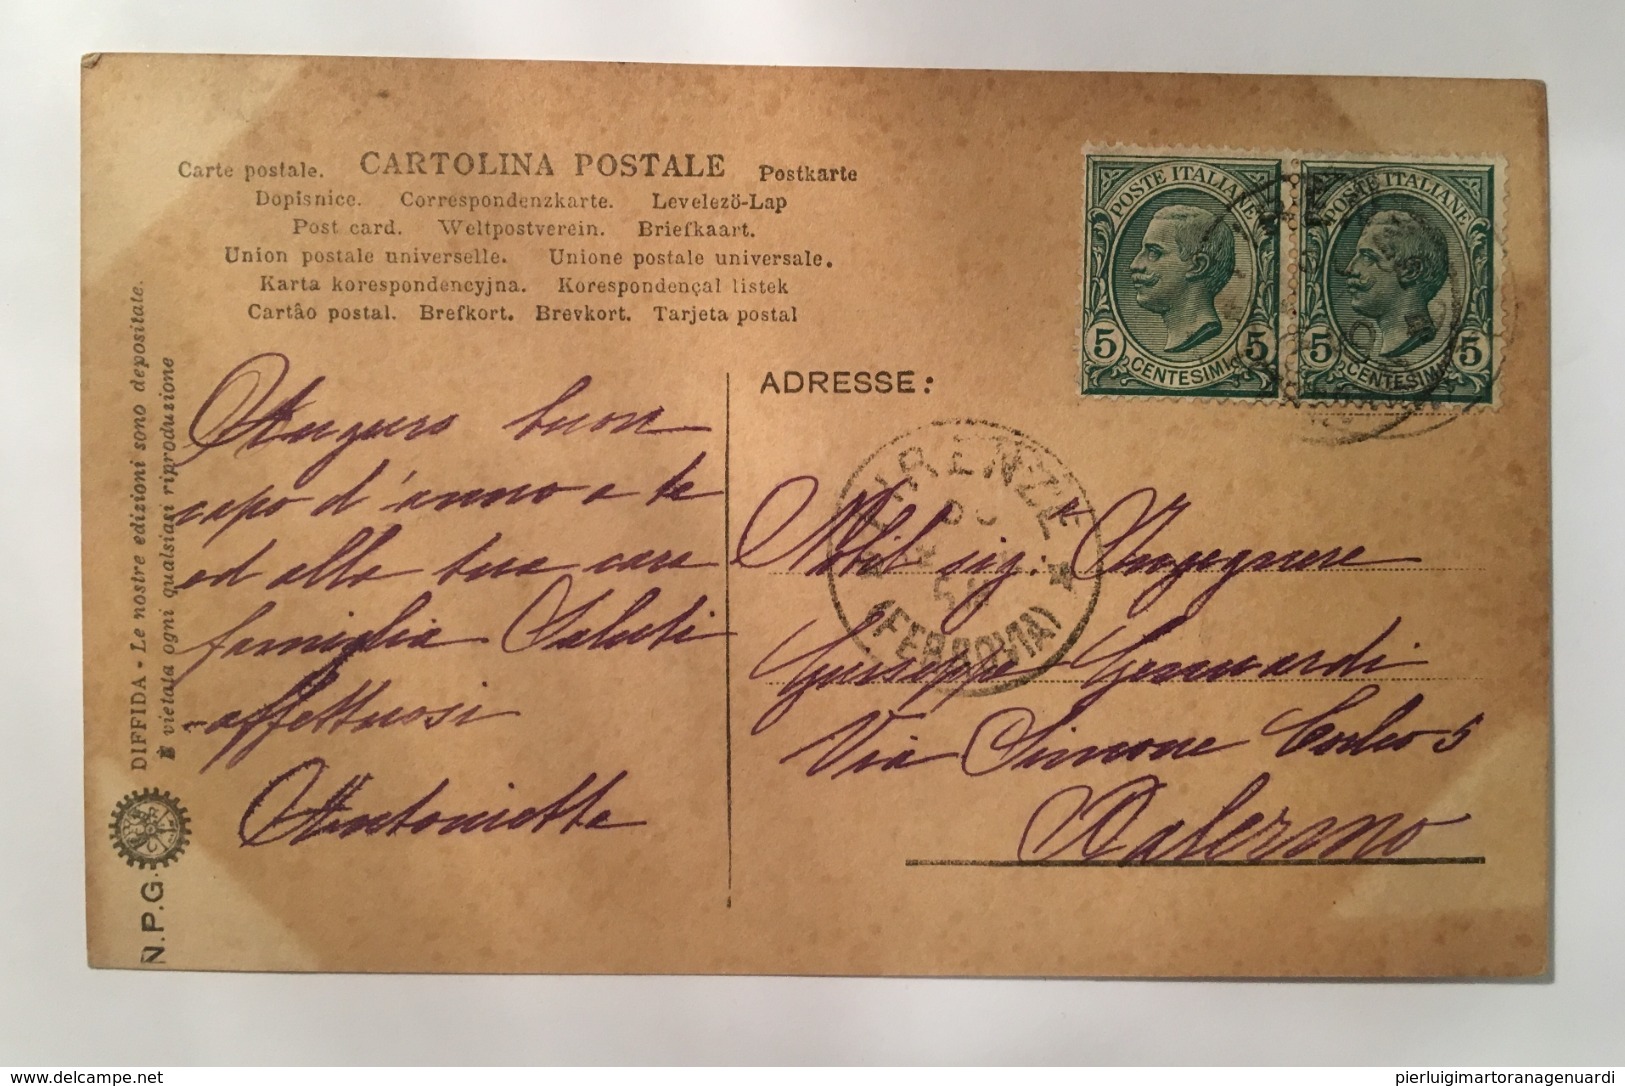 Carte postale. CARTOLINA POSTALE Postkarte
Dopisnice. Correspondenzkarte. Levelező-Lap
Post card. Weltpostverein. Briefkaart.
Union postale universelle. Unione postale universale.
Karta korespondencyjna. Korespondençal listek
Cartâo postal. Brefkort. Brevkort. Tarjeta postal
DIFFIDA - Le nostre edizioni sono depositate.
È vietata ogni qualsiasi riproduzione
N.P.G.
Auguro buon
capo d'anno a te
ed alla tua cara
famiglia Saluti
affettuosi
Antonietta
POSTE ITALIANE
5 CENTESIMI 5
POSTE ITALIANE
5 CENTESIMI 5
ADRESSE:
FIRENZE
(FERROVIA)
Nobil sig. Ingegnere
Giuseppe Genuardi
Via Simone Corleo 5
Palermo
https://www.delcampe.net
pierluigimartoranagenuardi